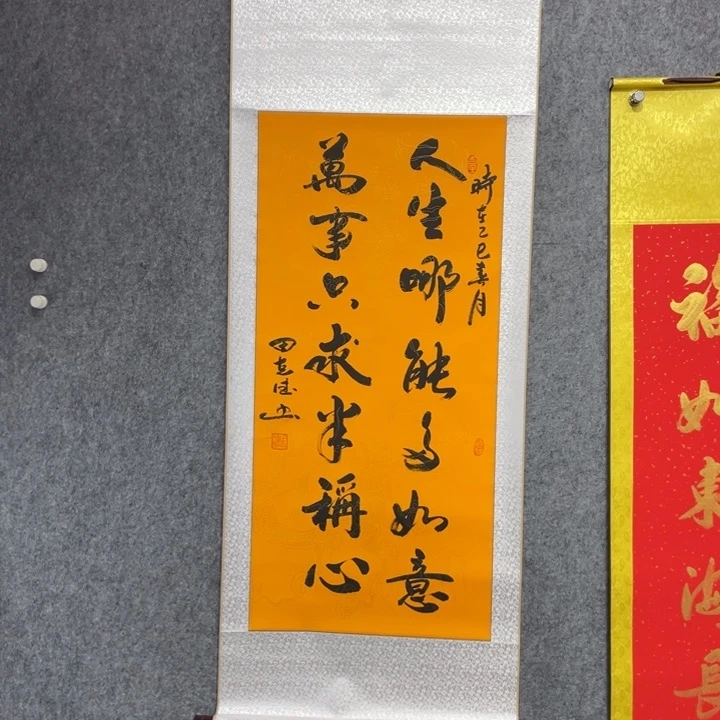 時在乙巳春月
人生哪能多如意
萬事只求半稱心
田克德书
福如東海長